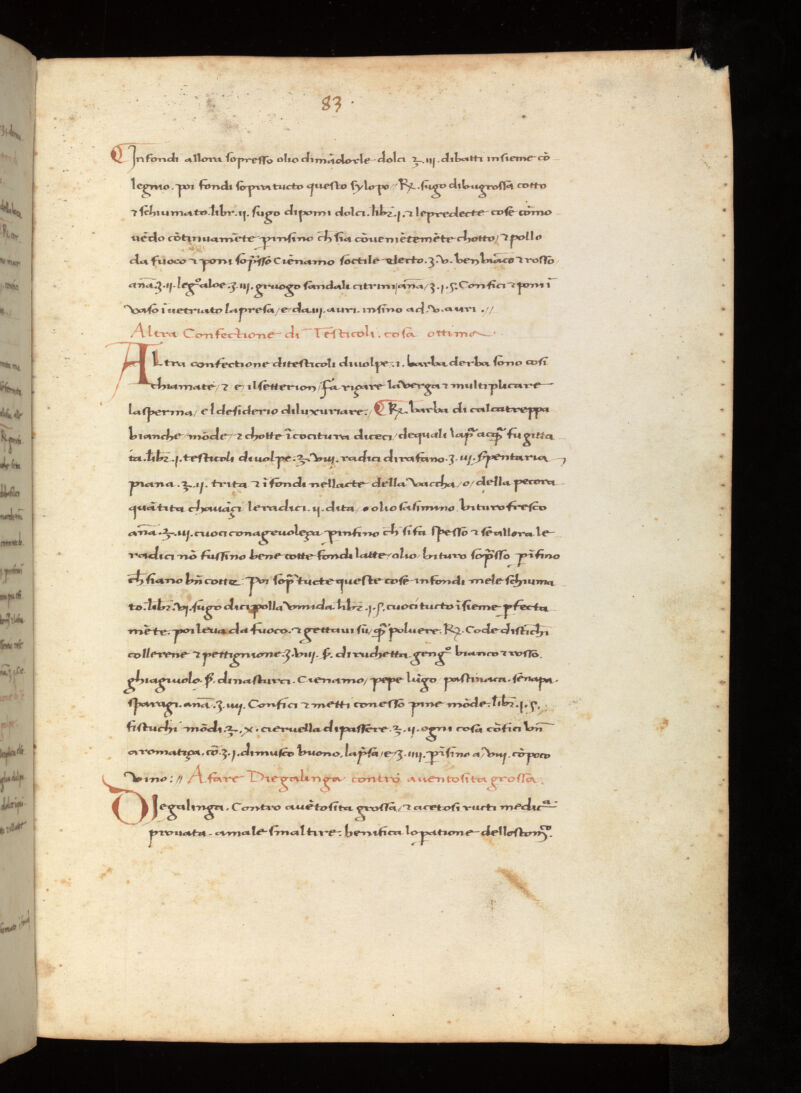 83.
Infondi allora sopresso olio dimãdorle dolci ʒ. iii. dibatti insieme cõ
legnio. poi fondi sopra tucto questo sylopo / ℞. sugo dibugrossa cotto
⁊ schiumato. libr. ii. sugo dipomi dolci. libr. i. ⁊ lepredecte cose cõmo
uẽdo cõtinuamẽte pinsino ch sia cõueniẽtemẽte chotto / ⁊ pollo
da fuoco ⁊ poni sopsso Ciẽnamo soctile electo. ʒ. v. ben biãco ⁊ rosso
anã. ʒ. ii. legº aloe. ʒ. iii. gruogo sandali citrini / anã / ʒ. i. ς. Confici ⁊ poni ĩ
uaso ĩuetriato lapresa / e da iii. auri. insino ad. v. auri. //
Altra Confectione di Testicoli. cosa ottima
Altra confectione ditesticoli diuolpe. i. barba derba sono cosi
chiamate / ⁊ e ilsetterion / fa rigare la uerga ⁊ multiplicare
lasperma / el desiderio diluxuriare: ℞. barba di calcatreppa
bianche mõde ⁊ chotte ĩcocitura diceci / dequali lap acq fu gitta
ta. libr. i. testicoli diuolpe. ʒ. viii. radici dirafano. ʒ. iii. spentaria
piana. ʒ. ii. trita ⁊ ĩfondi nellacte della uaccha / o / della pecora
quãtita chauãçi leradici. ii. dita / o olio sasimino. bituro fresco
anã. ʒ. iii. cuoci conageuoleça pinfino ch si fa spesso ⁊ se allora le
radici nõ fussino bene cotte fondi latte / olio / bituro sopsso pinfino
ch siano bñ cotte. Poi sop tucte queste cose infondi mele schiuma
to. libr. vi. sugo dicipolla vmida. libr. i. ς. cuoci tucto ĩsieme pfecta
mẽte. poi leua da fuoco. ⁊ gettaui su / q poluere. ℞. Code distichi
collerene ⁊ pettignione. ʒ. viii. s. di ruchetta gengº bianco ⁊ rosso.
ghiagiuolo. s. di nasturci. Cienamo / pepe lũgo pastinaca. senapa.
sparagi. anã. ʒ. iiii. Confici ⁊ metti con esso pine mõde. libr. i. ς.
fistuchi mõdi. ʒ. x. cieruella dipassere. ʒ. ii. ogni cosa cõfici vñ
aromatiça. cõ. ʒ. i. dimusco buono. lapsa / e / ʒ. iiii. pinsino a viii. cõ poco
vino: // A fare Diegalinga contro auentosita grossa.
Diegalinga. Contro auẽtosita grossa / ⁊ acetosi ructi medicª
prouata. amale smaltire: benifica lo patione dellostomº.